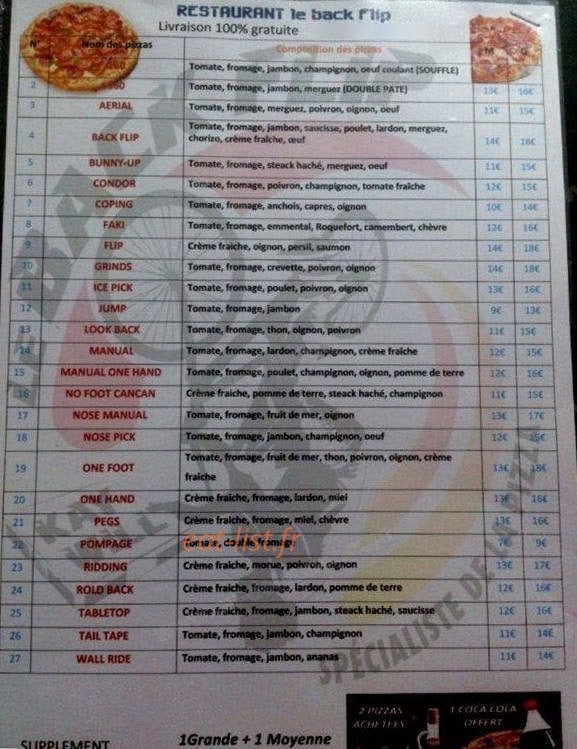 RESTAURANT le back flip
Livraison 100% gratuite
N° Nom des pizzas Composition des pizzas M G
Tomate, fromage, jambon, champignon, oeuf coulant (SOUFFLE)
2 Tomate, fromage, jambon, merguez (DOUBLE PATE) 13€ 16€
3 AERIAL Tomate, fromage, merguez, poivron, oignon, oeuf 11€ 15€
4 BACK FLIP Tomate, fromage, jambon, saucisse, poulet, lardon, merguez,
chorizo, crème fraiche, œuf 14€ 18€
5 BUNNY-UP Tomate, fromage, steack haché, merguez, oeuf 11€ 15€
6 CONDOR Tomate, fromage, poivron, champignon, tomate fraîche 12€ 15€
7 COPING Tomate, fromage, anchois, capres, oignon 10€ 14€
8 FAKI Tomate, fromage, emmental, Roquefort, camembert, chèvre 12€ 16€
9 FLIP Crème fraiche, oignon, persil, saumon 14€ 18€
10 GRINDS Tomate, fromage, crevette, poivron, oignon 14€ 18€
11 ICE PICK Tomate, fromage, poulet, poivron, oignon 13€ 16€
12 JUMP Tomate, fromage, jambon 9€ 13€
13 LOOK BACK Tomate, fromage, thon, oignon, poivron 11€ 15€
14 MANUAL Tomate, fromage, lardon, champignon, crème fraîche 12€ 15€
15 MANUAL ONE HAND Tomate, fromage, poulet, champignon, oignon, pomme de terre 12€ 16€
16 NO FOOT CANCAN Crème fraiche, pomme de terre, steack haché, champignon 11€ 15€
17 NOSE MANUAL Tomate, fromage, fruit de mer, oignon 13€ 17€
18 NOSE PICK Tomate, fromage, jambon, champignon, oeuf 12€ 15€
19 ONE FOOT Tomate, fromage, fruit de mer, thon, poivron, oignon, crème
fraiche 13€ 18€
20 ONE HAND Crème fraiche, fromage, lardon, miel 13€ 16€
21 PEGS Crème fraiche, fromage, miel, chèvre 13€ 16€
22 POMPAGE Tomate, double fromage 7€ 9€
eat-list.fr
23 RIDDING Crème fraiche, morue, poivron, oignon 13€ 17€
24 ROLD BACK Crème fraiche, fromage, lardon, pomme de terre 12€ 16€
25 TABLETOP Crème fraiche, fromage, jambon, steack haché, saucisse 12€ 16€
26 TAIL TAPE Tomate, fromage, jambon, champignon 11€ 14€
27 WALL RIDE Tomate, fromage, jambon, ananas 11€ 14€
SPÉCIALISTE DE LA PIZZA
2 PIZZAS
ACHETEES
1 COCA COLA
OFFERT
SUPPLEMENT
1Grande + 1 Moyenne